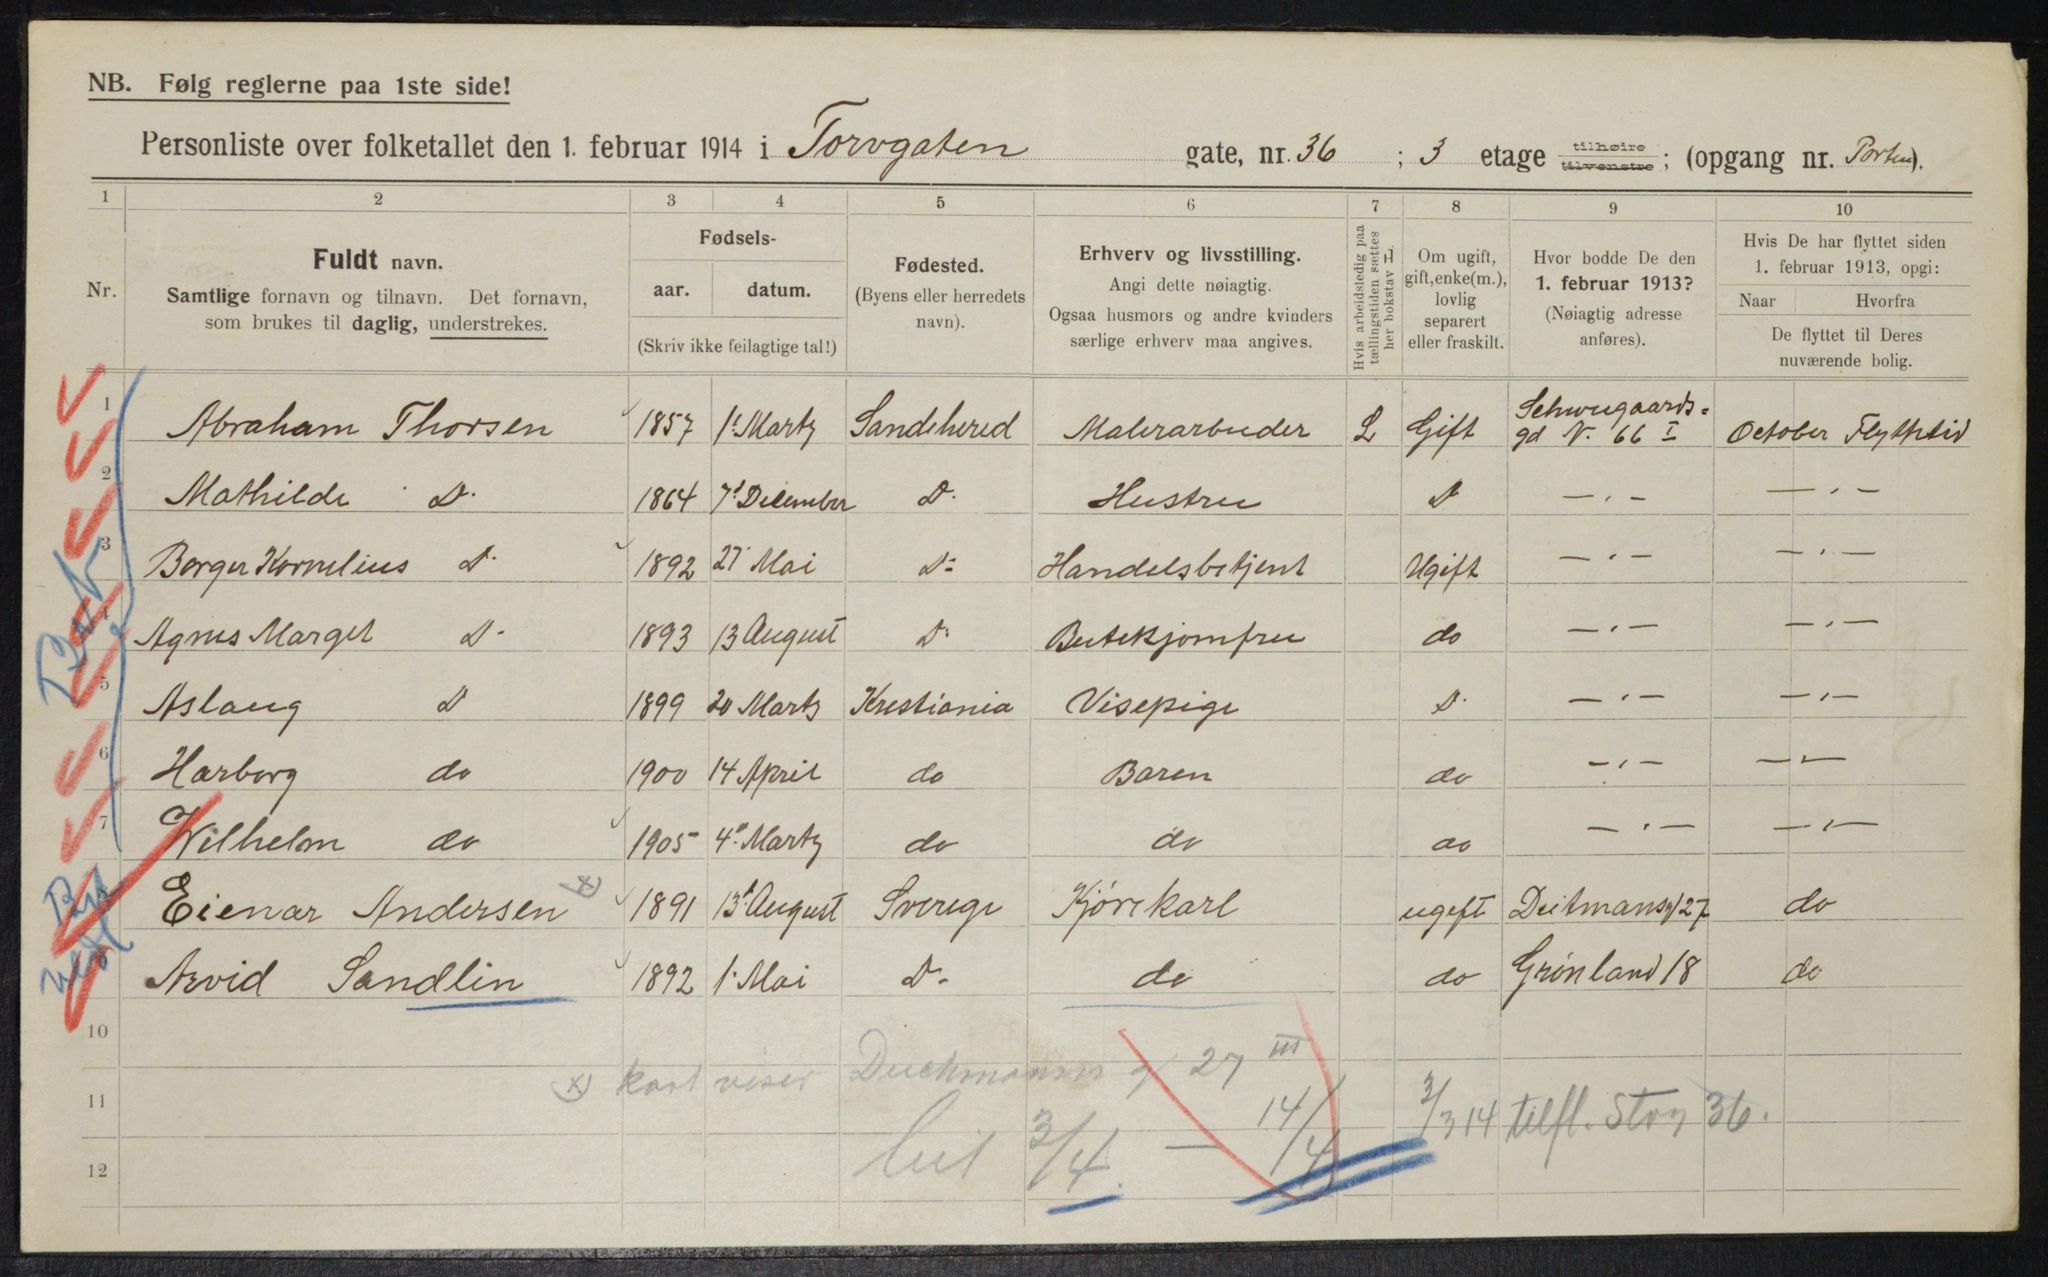 NB. Følg reglerne paa 1ste side!
Personliste over folketallet den 1. februar 1914 i Torvgaten gate, nr. 36 ; 3 etage tilhøire tilvenstre ; (opgang nr. Porten).
1 2 3 4 5 6 7 8 9 10
Nr.
Fuldt navn.
Samtlige fornavn og tilnavn. Det fornavn,
som brukes til daglig, understrekes.
Fødsels-
aar. datum.
(Skriv ikke feilagtige tal!)
Fødested.
(Byens eller herredets
navn).
Erhverv og livsstilling.
Angi dette nøiagtig.
Ogsaa husmors og andre kvinders
særlige erhverv maa angives.
Hvis arbeidsledig paa
tællingstiden sættes
her bokstav L.
Om ugift,
gift, enke(m.),
lovlig
separert
eller fraskilt.
Hvor bodde De den
1. februar 1913?
(Nøiagtig adresse
anføres).
Hvis De har flyttet siden
1. februar 1913, opgi:
Naar Hvorfra
De flyttet til Deres
nuværende bolig.
1 Abraham Thorsen 1857 1' Marts Sandehered Malerarbeider L Gift Schweigaards= gd N. 66 I October Flyttetid
2 Mathilde D. 1864 7' December D. Hustru D — " — — " —
3 Borger Kornelius D. 1892 27 Mai D: Handelsbetjent Ugift — " — — " —
4 Agnes Margit D. 1893 13 August D: Butekjomfru do — " — — " —
5 Aslaug D 1899 20 Marts Kristiania Visepige D. — " — — " —
6 Harborg do 1900 14 April do Baren do — " — — " —
7 Wilhelm do 1905 4' Marts do do do — " — — " —
8 Eienar Andersen x) 1891 13' August Sverige Kjørekarl ugift Deitmansg/27 do
Arvid Sandlin 1892 1' Mai D. do do Grønland 18 do
10
x) kort viser Deichmanns g/ 27 III
11
3/3 14 tilfl. Stog 36.
3/4 — 14/4
12